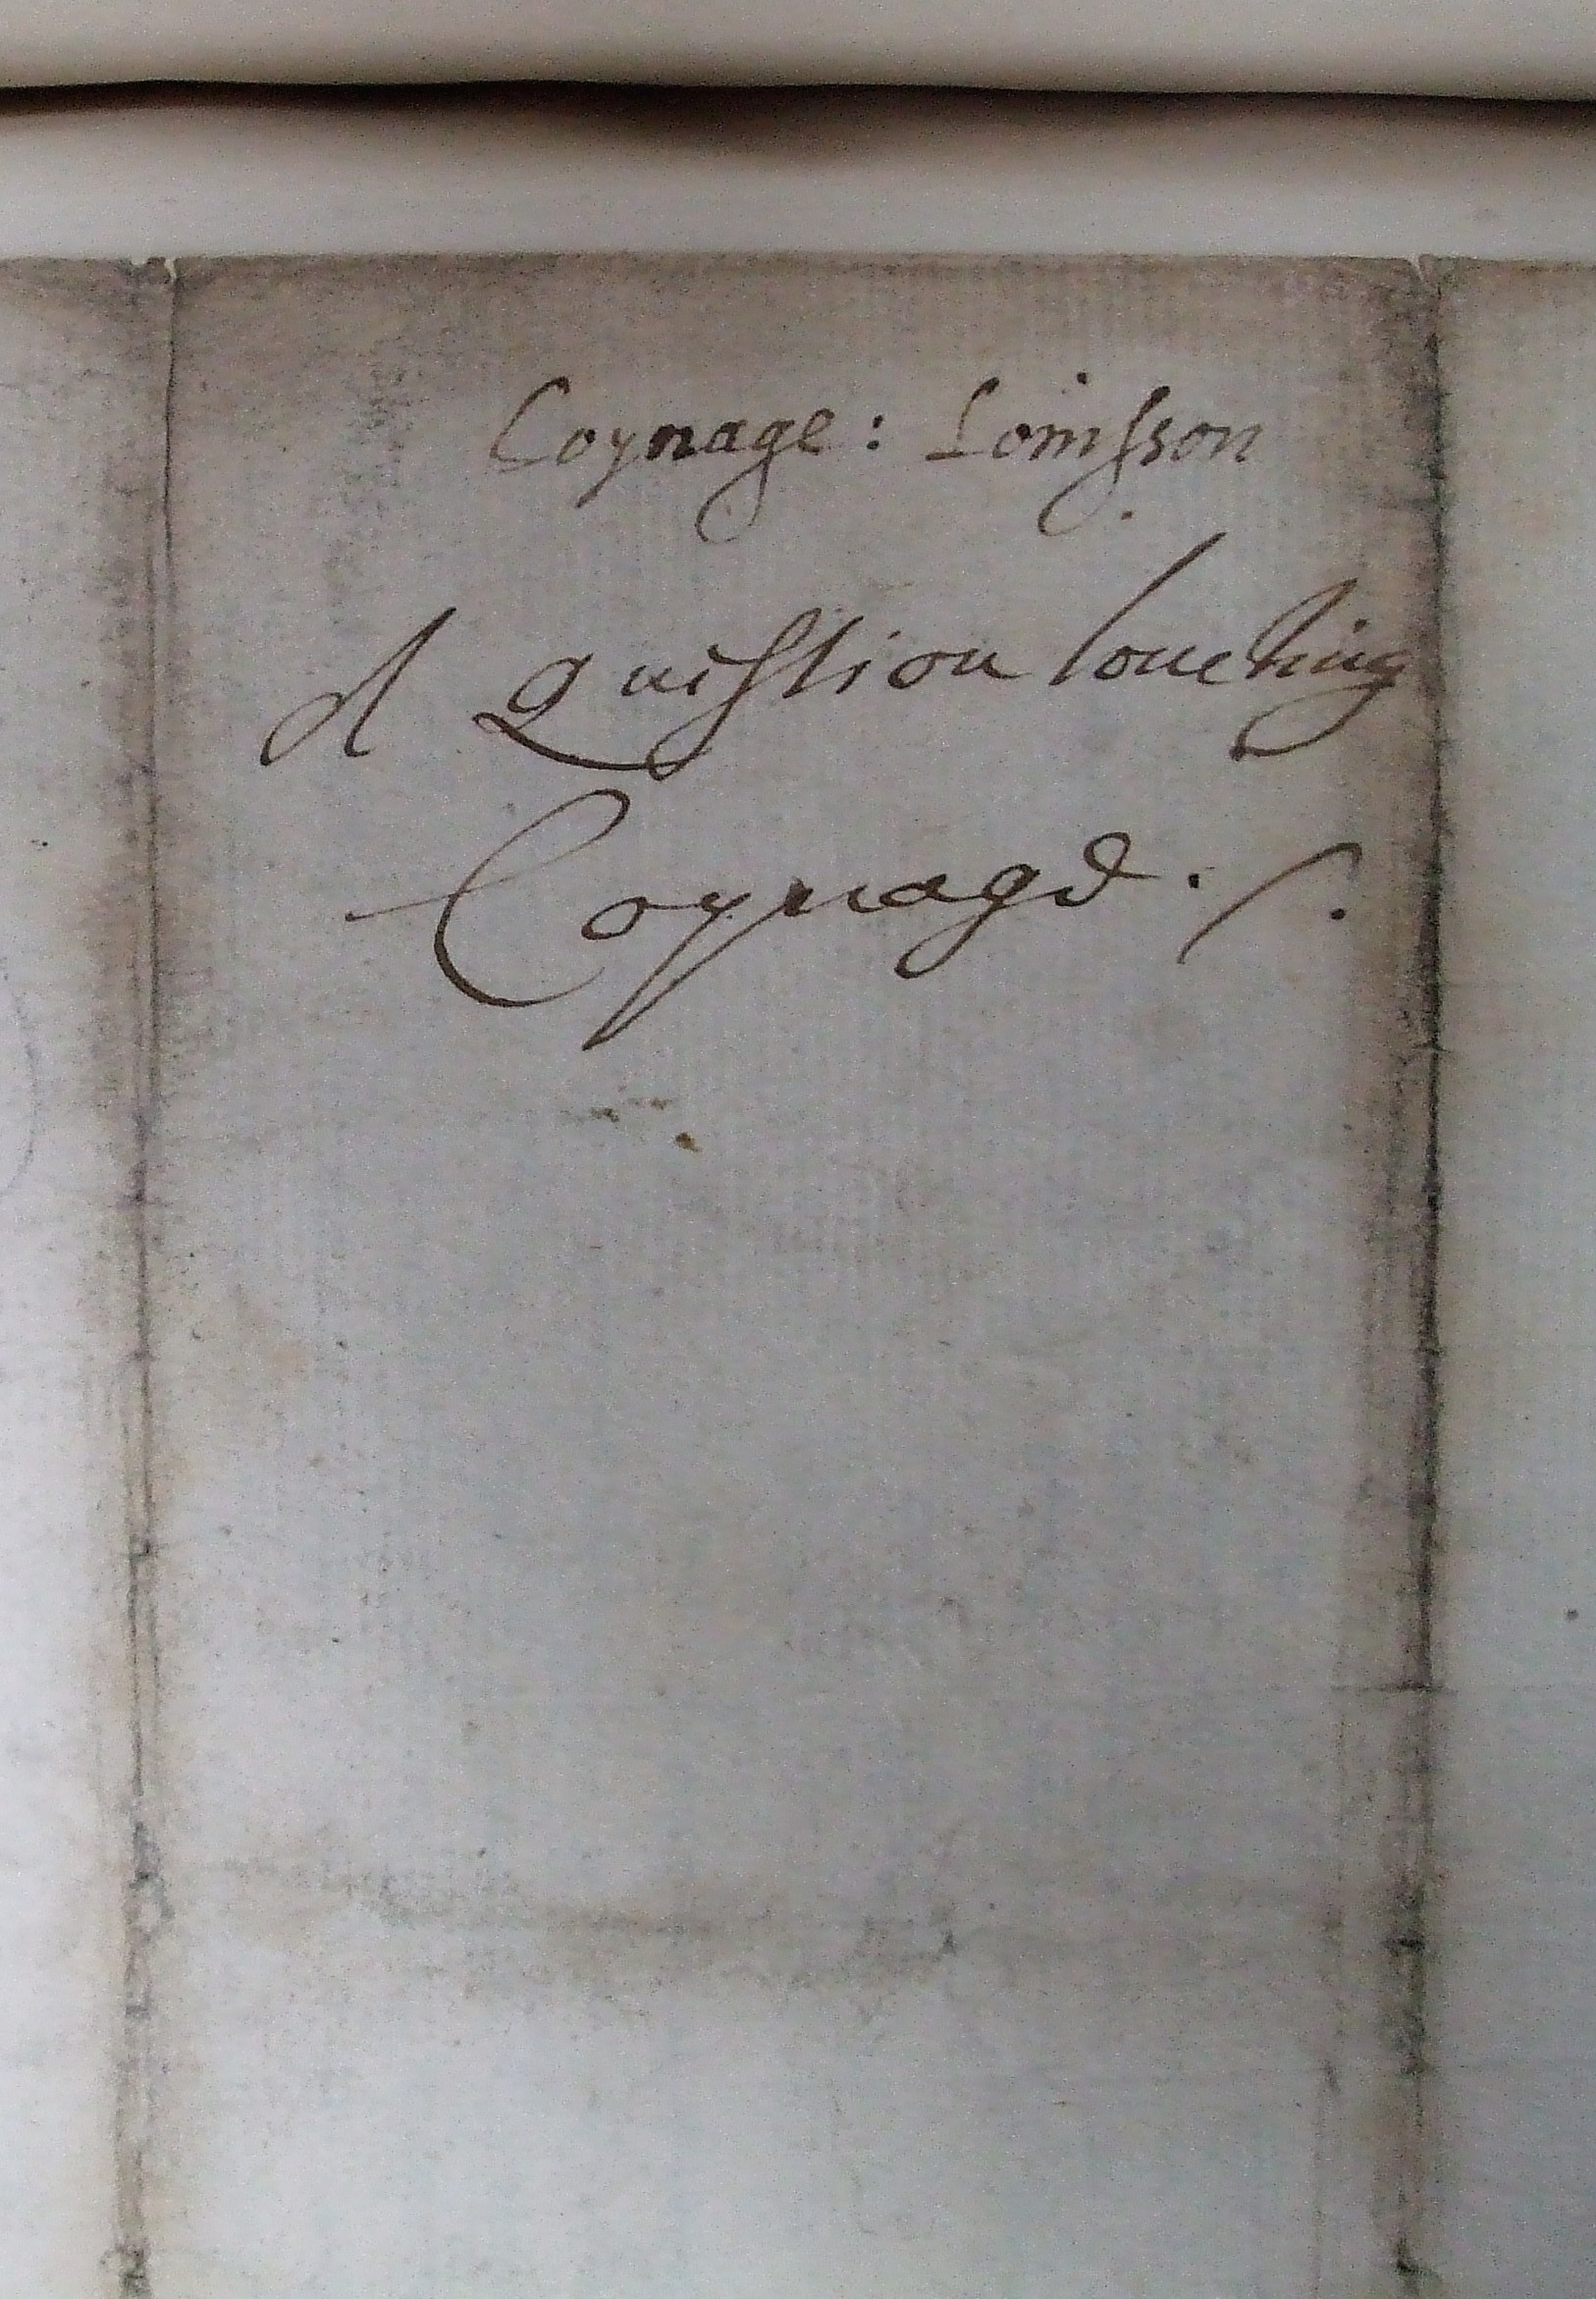 Coynage:
A Question touching
Coynage ./.